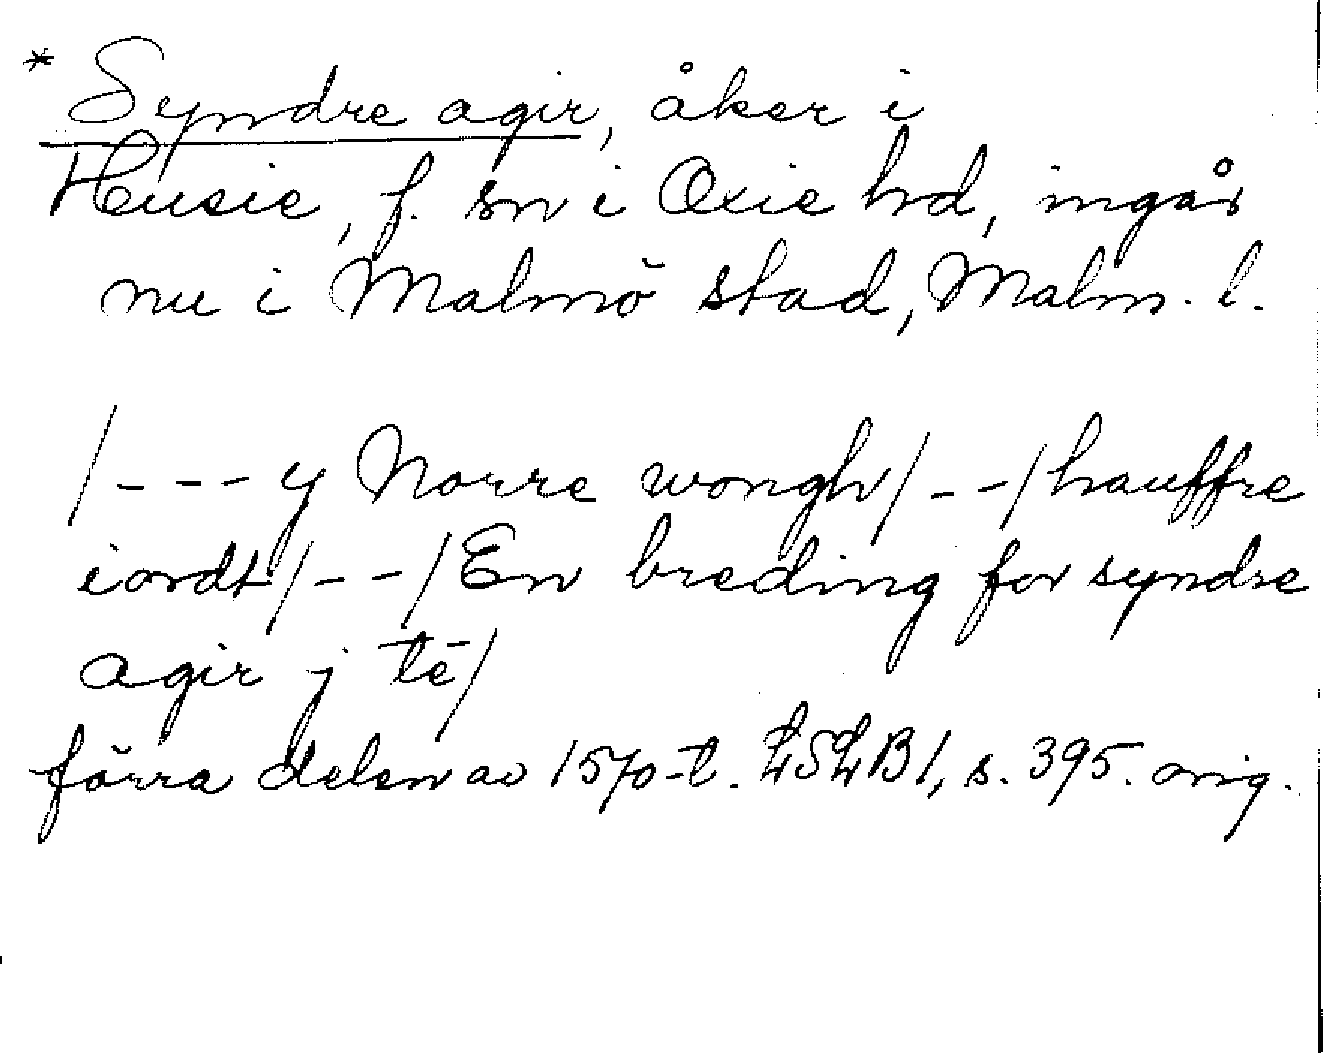 * Syndre agir, åker i
Husie, f. sn i Oxie hd, ingår
nu i Malmö stad, Malm. l.
/--- y Norre wongh/--/hauffre
iordt/--/En breding for syndre
agir j té/
förra delen av 1570-t. LSLB1, s. 395. orig.